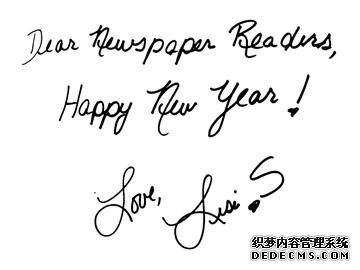 Dear Newspaper Readers,
Happy New Year!
Love, Lisi S
织梦内容管理系统
DEDECMS.COM